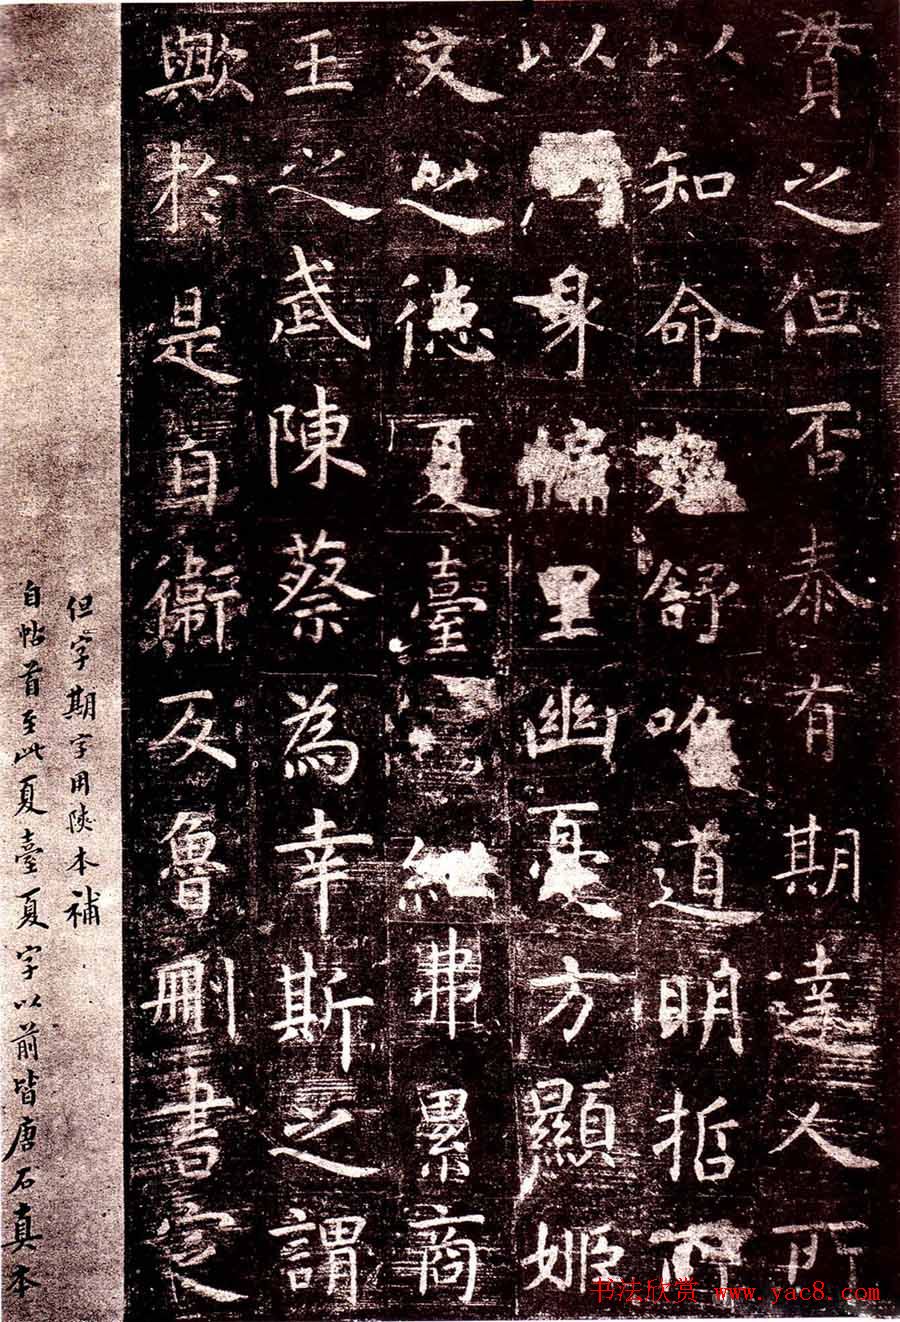 貫之但否泰有期達人所
以知命卷舒唯道明哲所
以身牖里幽憂方顯姬
文之德夏臺紲弗累商
王之武陳蔡為幸斯之謂
歟於是自衛反魯刪書定
但字期字用陝本補
自帖首至此夏臺夏字以前皆唐石真本
书法欣赏 www.yac8.com